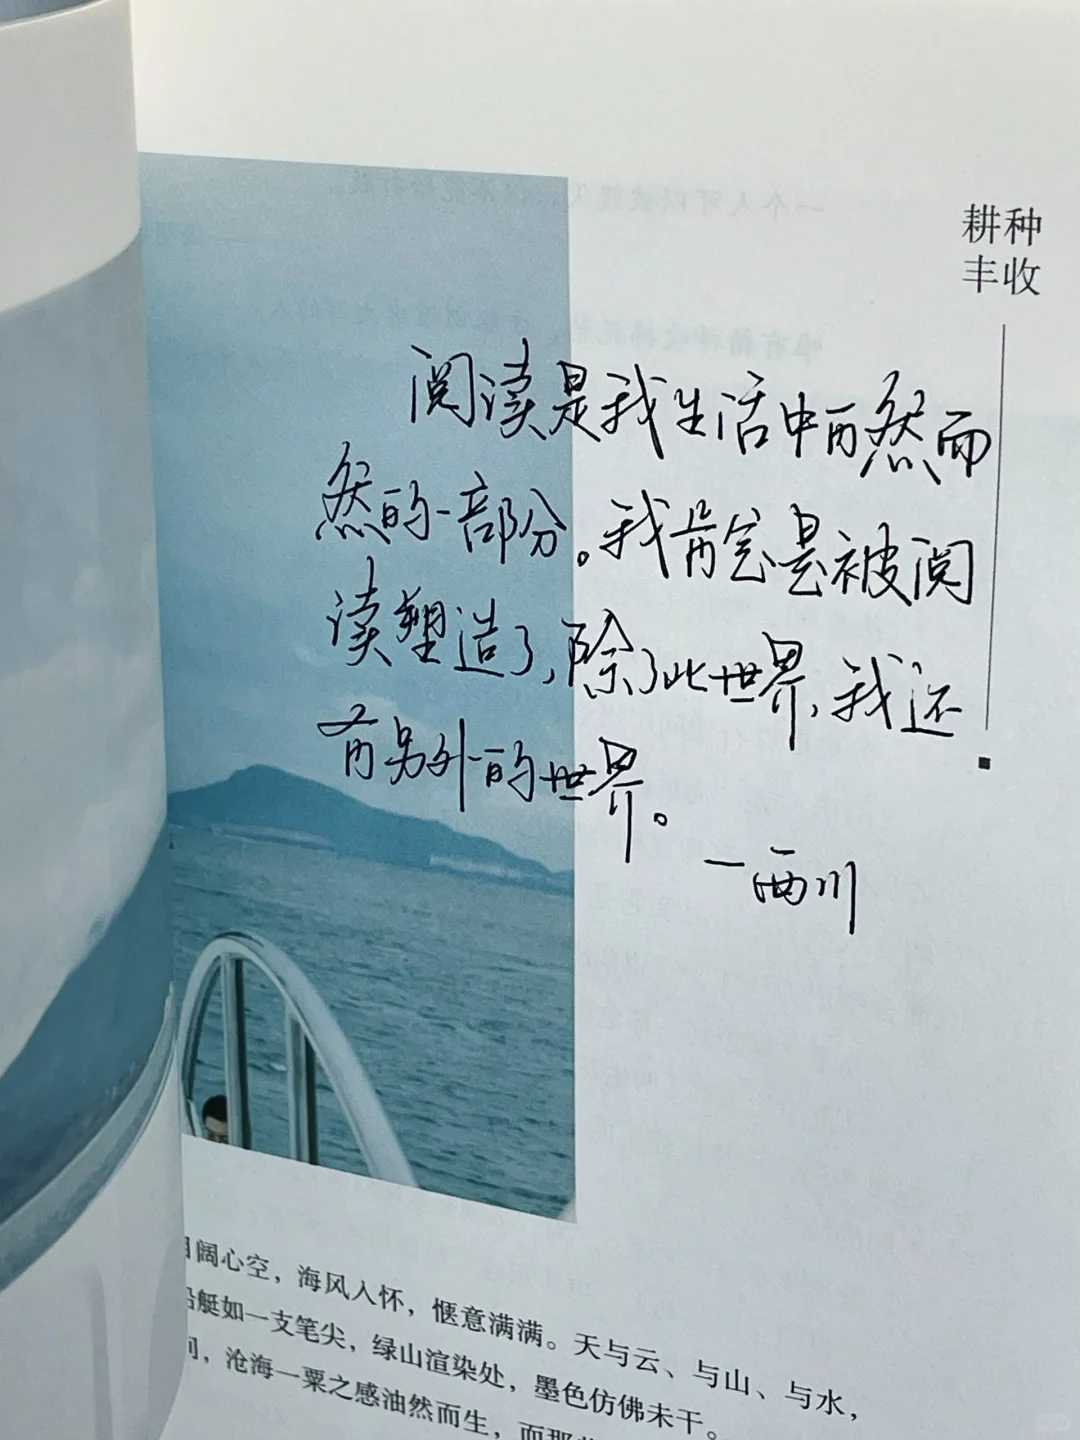 耕种
丰收
阅读是我生活中自然而
然的一部分。我肯定是被阅
读塑造了,除了此世界,我还
有另外的世界。
—西川
阔心空，海风入怀，惬意满满。天与云、与山、与水，
艇如一支笔尖，绿山渲染处，墨色仿佛未干。
，沧海一粟之感油然而生，而那